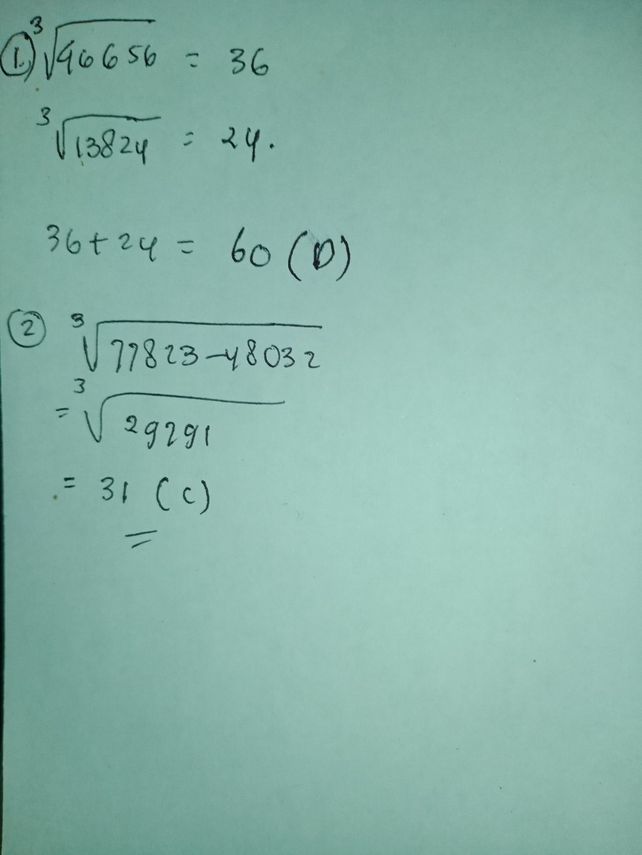 1. ∛46656 = 36
∛13824 = 24.
36 + 24 = 60 (D)
2 ∛77823-48032
= ∛29791
= 31 (C)